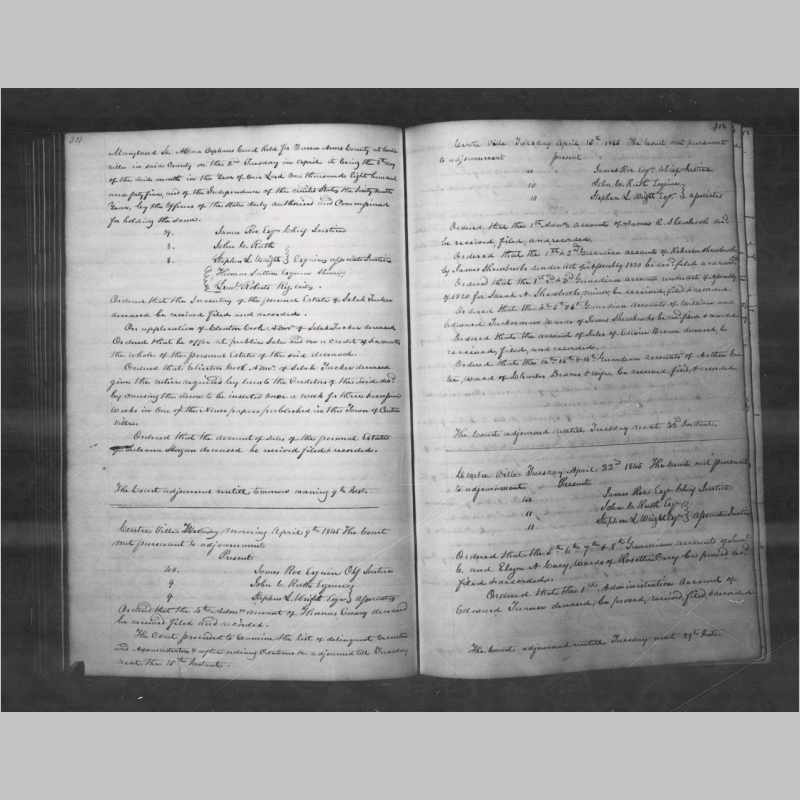 Maryland Sc. At an Orphans Court held for Queen Anns County at Centre
ville in said County on the 2nd Tuesday in april it being the 8th day
of the said month in the Year of Our Lord One thousand eight hundred
and forty five, and of the Independence of the United States the Sixty
Year, by the Officers of the State duly authorised and Commissioned
for holding the same.
James Roe Esqr Chief Justice
8. John C. Ruth
8. Stephen L. Wright Esquires associate Justices
Thomas Sutton Esquire Sheriff
Roberts Register.
Ordered that the Inventory of the personal Estate of Selah Tucker
deceased be received filed and recorded.
On application of Clinton Cook Admr. of Selah Tucker deceased
Ordered that he offer at public Sale and on a credit of months
the whole of the personal Estate of the said deceased.
Ordered that Clinton Cook Admr. of Selah Tucker deceased
give the notice required by law to the Creditors of the said decd
by causing the same to be inserted once a week for three successive
weeks in one of the News papers published in the Town of Centre
ville.
Ordered that the account of sales of the personal Estate
of Morgan deceased be received filed & recorded.
The Court adjourned untill tomorrow morning 9th Inst.
Centre Ville Wednesday Morning April 9th 1845 The Court
met pursuant to adjournment
Present
James Roe Esquire Chf Justice
9 John C. Ruth Esquire
9 Stephen L. Wright Esqr associates
Ordered that the Admn account of Thomas deceased
be received filed and recorded.
The Court proceeded to examine the list of delinquent Executors
and Administrators & after ordering Citations &c adjourned till Tuesday
next the 15th Instant.
Centre Ville Tuesday April 15th 1845 The Court met pursuant
to adjournment present
James Roe Esqr Chief Justice
John C. Ruth Esquire
Stephen L. Wright Esqr associates
Ordered that the 1st Admn accounts of James
be received, filed, and recorded.
Ordered that the 1st & 2nd Guardian accounts of
by James under act of assembly 1820 be recd filed & recorded
Ordered that the 1st 2nd & 3rd Guardian accounts under act of assembly
of 1820 for Sarah A. minor, be received filed & recorded
Ordered that the 4th 5th & 6th Guardian accounts of William and
Edward wards of James be recd filed & recorded
Ordered that the account of Sales of Brown deceased, be
received, filed, and recorded.
Ordered that the Guardian accounts of Arthur
ward of Charles & wife be received filed & recorded
The Court adjourned untill Tuesday next 22d Instant.
Centre Ville Tuesday April 22nd 1845 The Court met pursuant
to adjournment Present
James Roe Esqr Chief Justice
John C. Ruth Esqr
Stephen L. Wright Esqr associate Justices
Ordered that the 5th 6th 7th & 8th Guardian accounts of
C. and Eliza A. wards of be passed and
filed & recorded.
Ordered that the 1st Administration Account of
Edward Turner deceased, be passed, received filed & recorded
The Court adjourned untill Tuesday next 29th Inst.